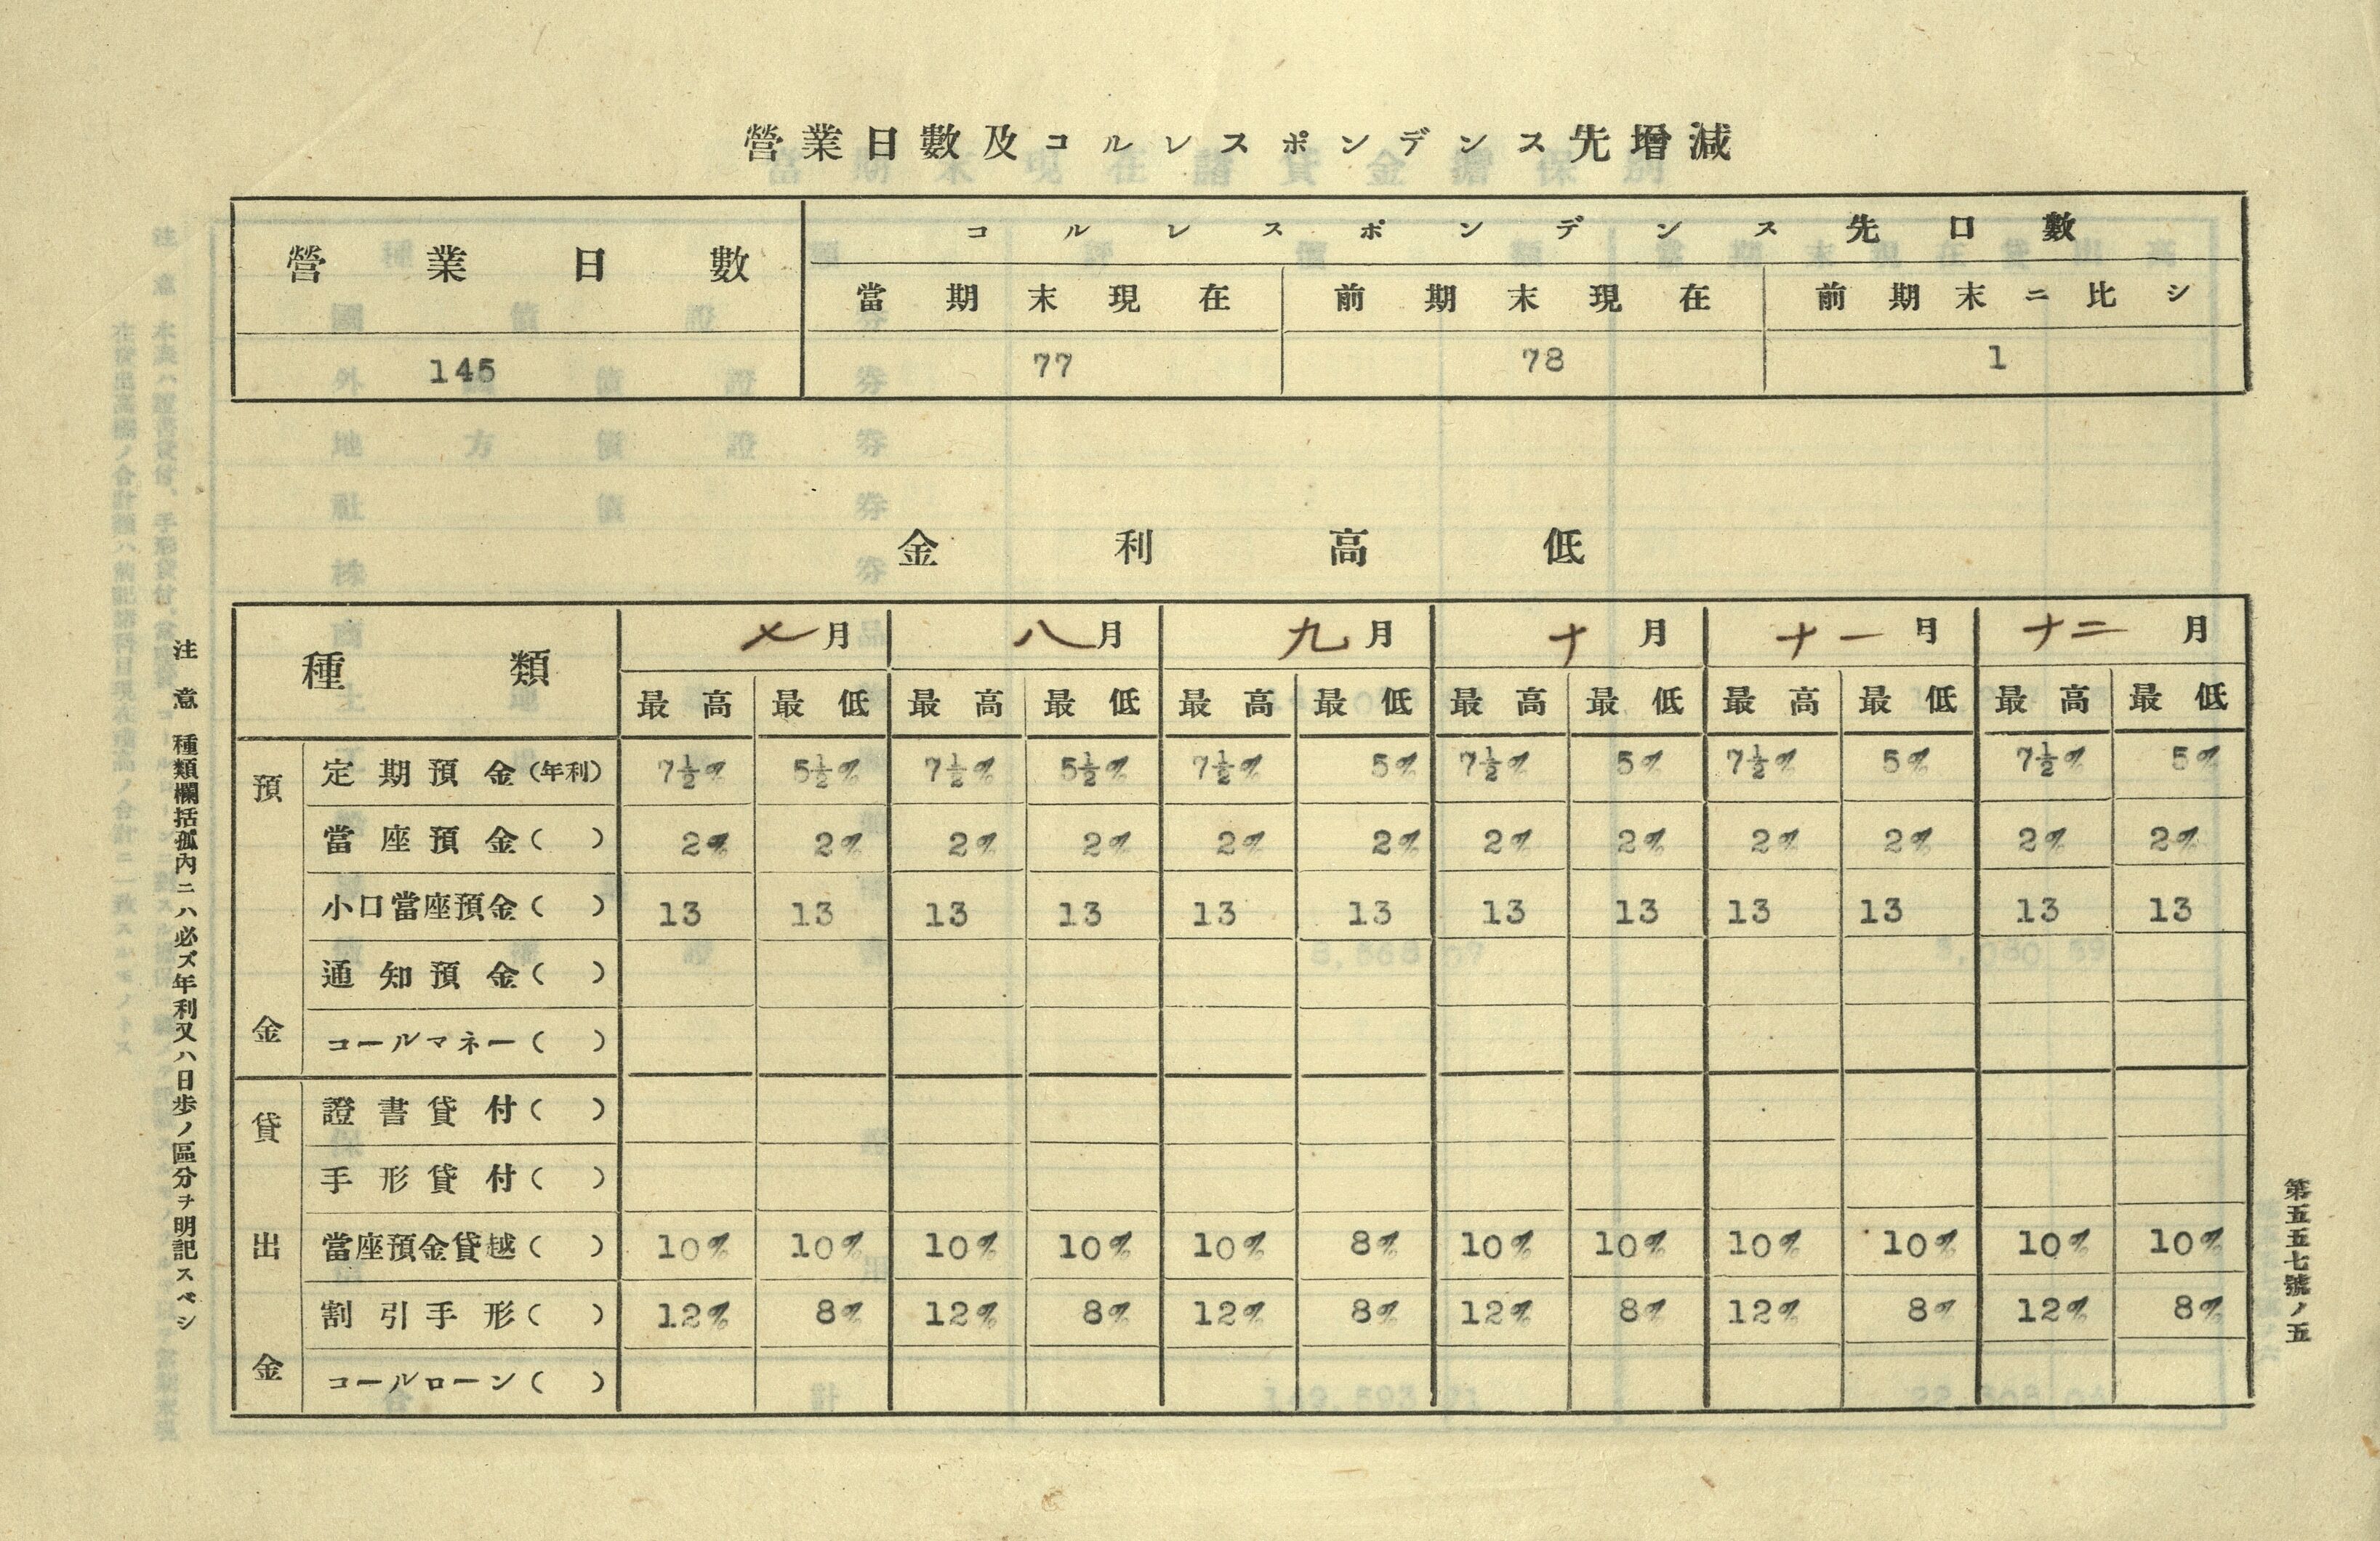 營業日數及コルレスポンデンス先增減
營業日數 コルレスポンデンス先口數
當期末現在 前期末現在 前期末ニ比シ
145 77 78 1
金利高低
種類 七月 八月 九月 十月 十一月 十二月
最高 最低 最高 最低 最高 最低 最高 最低 最高 最低 最高 最低
預金
定期預金(年利) 7½% 5½% 7½% 5½% 7½% 5% 7½% 5% 7½% 5% 7½% 5%
當座預金( ) 2% 2% 2% 2% 2% 2% 2% 2% 2% 2% 2% 2%
小口當座預金( ) 13 13 13 13 13 13 13 13 13 13 13 13
通知預金( )
コールマネー( )
貸出金
證書貸付( )
手形貸付( )
當座預金貸越( ) 10% 10% 10% 10% 10% 8% 10% 10% 10% 10% 10% 10%
割引手形( ) 12% 8% 12% 8% 12% 8% 12% 8% 12% 8% 12% 8%
コールローン( )
注意 種類欄括孤內ニハ必ズ年利又ハ日步ノ區分ヲ明記スベシ
第五五七號ノ五